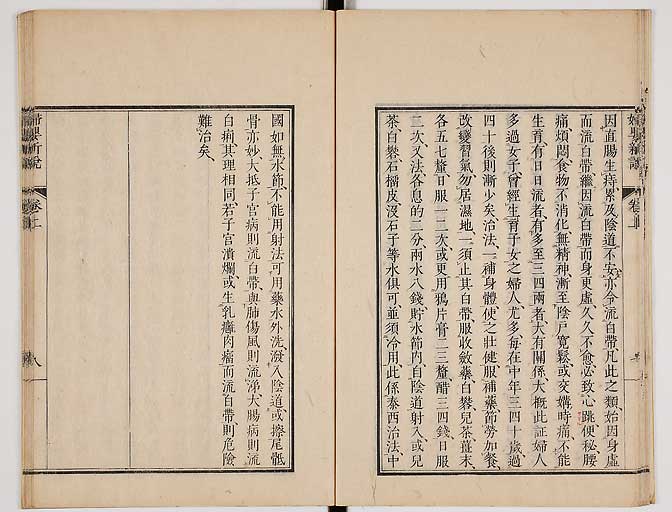 因直腸生痔累及陰道不安亦令流白帶凡此之類始因身虛
而流白帶繼因流白帶而身更虛久久不愈必致心跳便秘腰
痛煩悶食物不消化無精神漸至陰戶寬鬆或交媾時痛不能
生育有日日流者有多至三四兩者大有關係大概此証婦人
多過女子曾經生育子女之婦人尤多每在中年三四十歲過
四十後則漸少矣治法一補身體使之壯健服補藥節勞加餐
改變習氣勿居濕地一須止其白帶服收斂藥白礬兒茶薑末
各五七釐日服一二次或更用鴉片膏二三釐醋三四錢日服
二次又法各息的二分兩水八錢貯水節內自陰道射入或兒
茶白礬石榴皮沒石子等水俱可並須冷用此係泰西治法中
婦嬰新說
卷上
國如無水節不能用射法可用藥水外洗潑入陰道或擦尾骶
骨亦妙大抵子宮病則流白帶與肺傷風則流涕大腸病則流
白痢其理相同若子宮潰爛或生乳癰肉瘤而流白帶則危險
難治矣
婦嬰新說
卷上
八